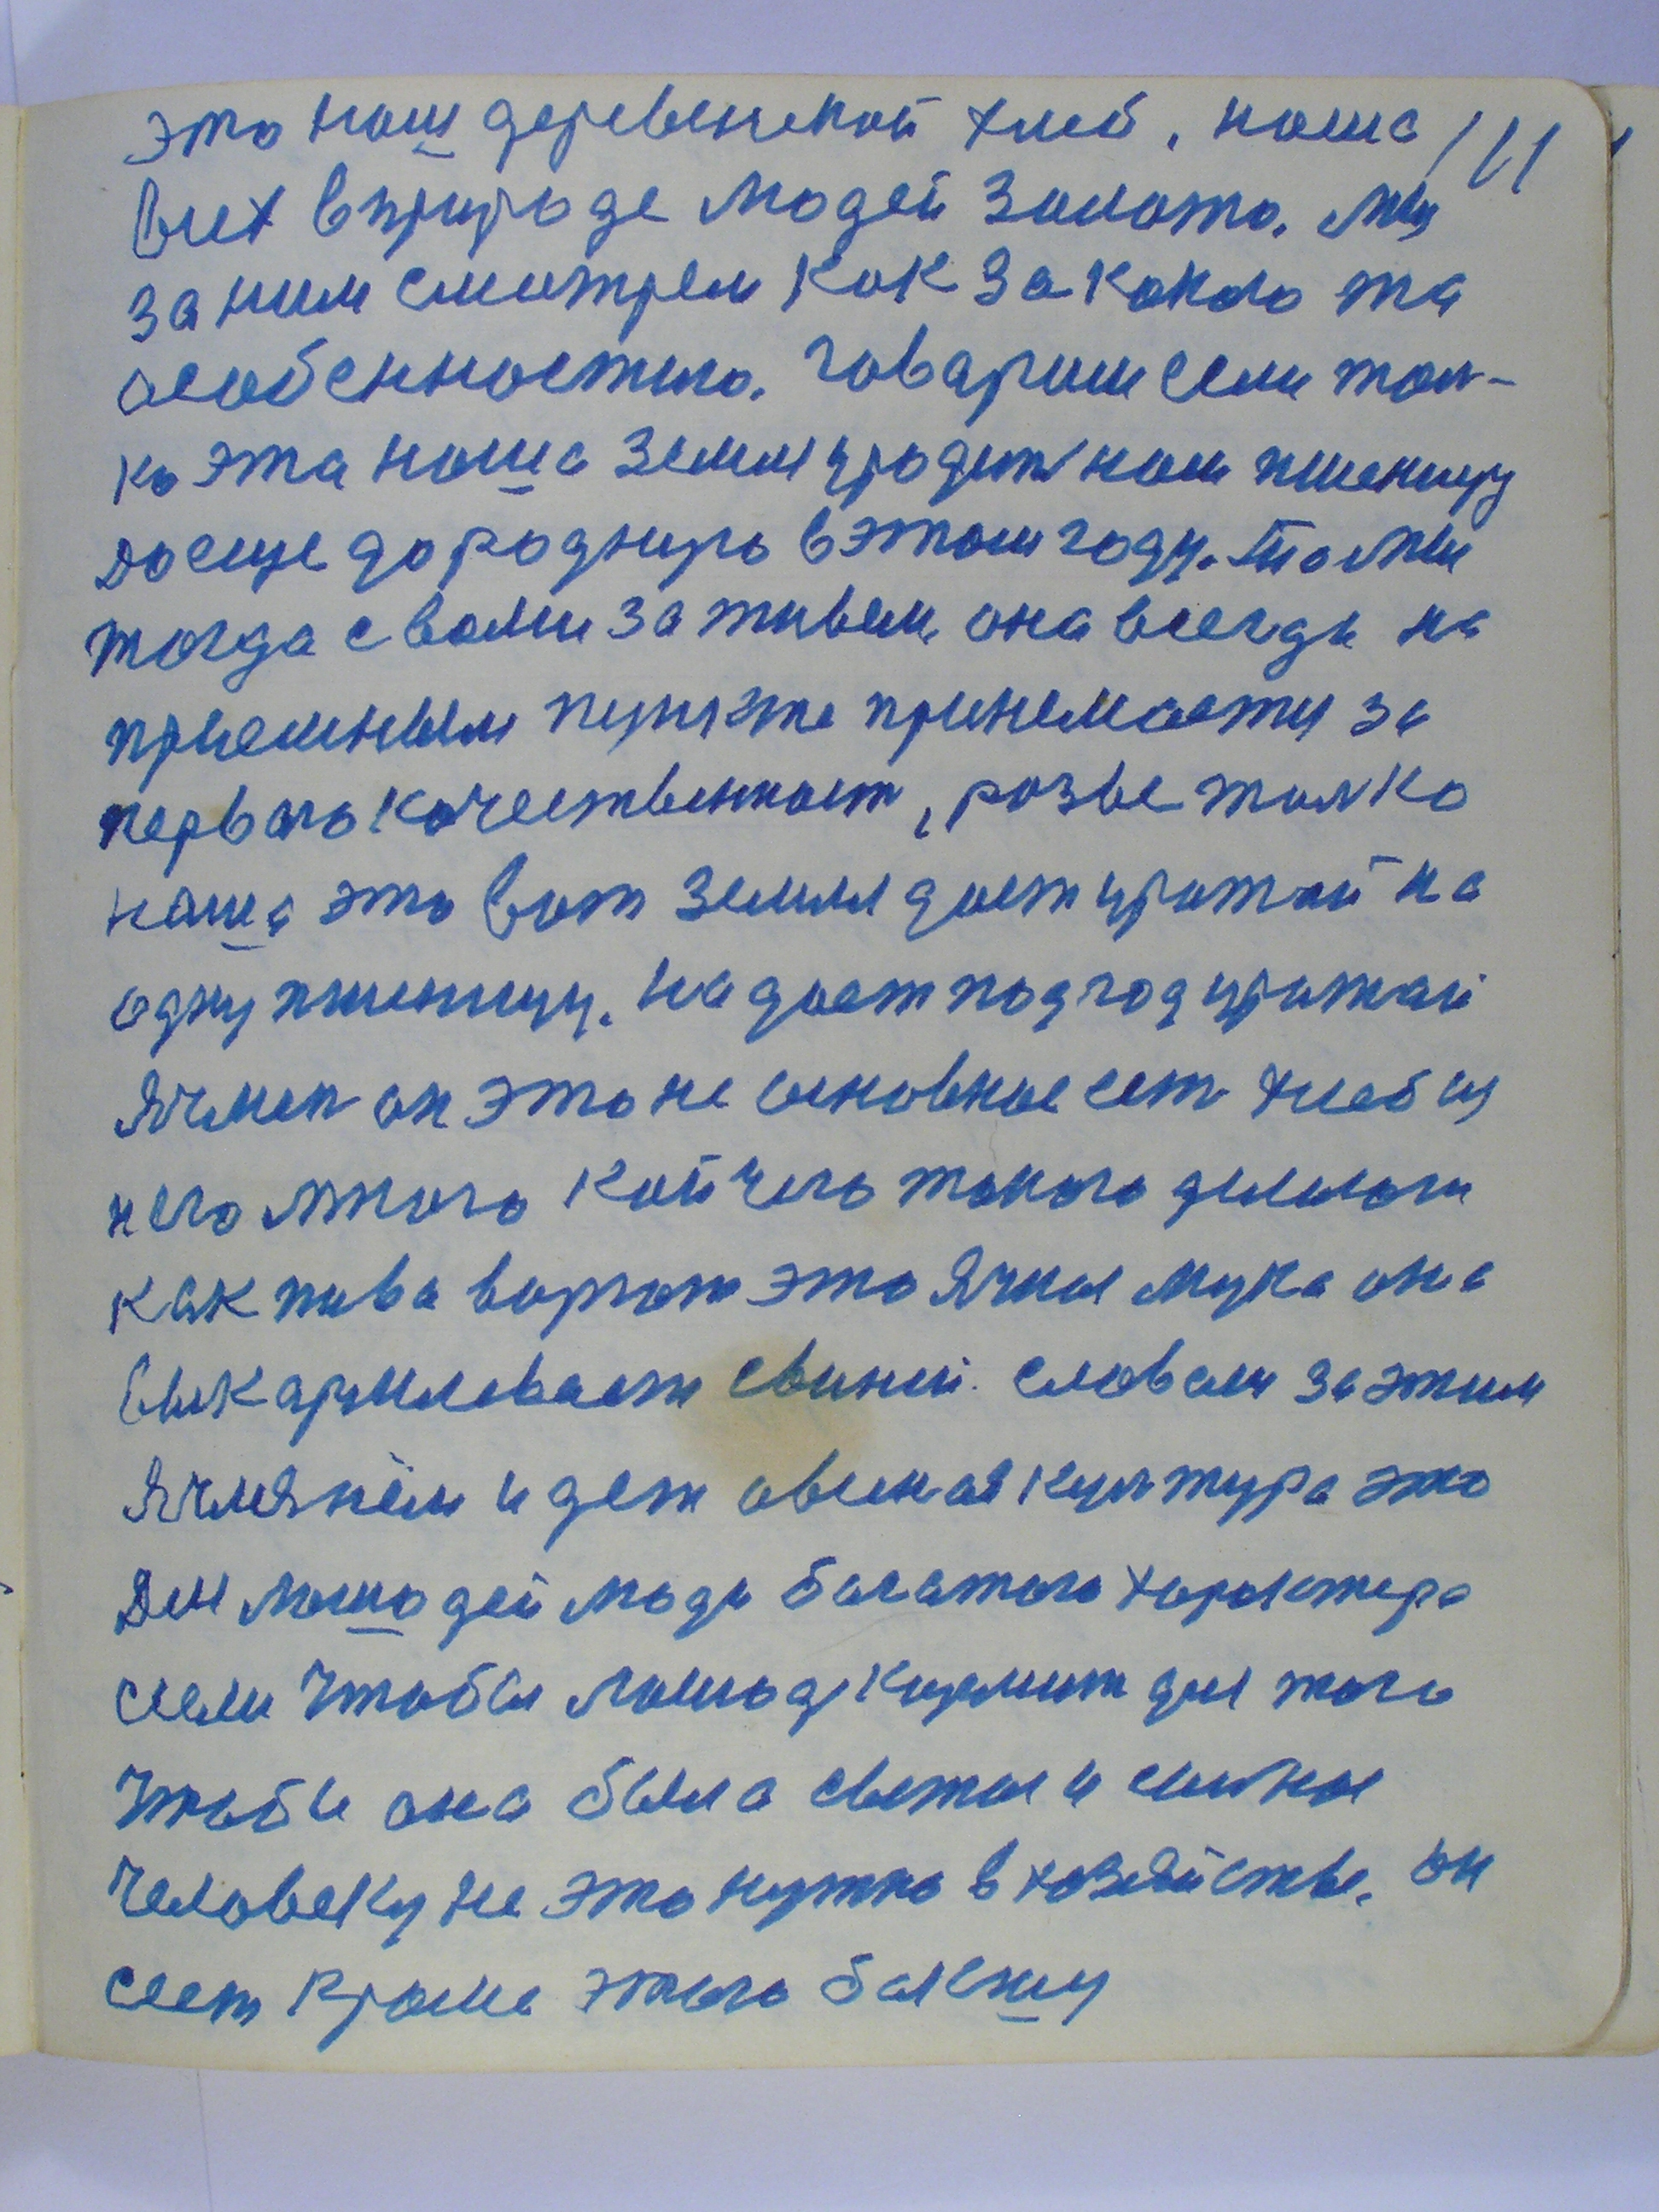 это наш деревенской хлеб, наша 111
всех в природе людей золото. мы
за ним смотрем как за какою та
особенностию. Говариш если тол-
ко эта наша земля уродит нам пшеницу
да еще дородную в этом году. то мы
тогда с вами заживем. она всегда на
приемным пункте принемается за
первого качественност, разве толко
наша это вот земля дает уражай на
одну пшеницу. на дает под год уражай
Ячмен он это не основное ест хлеб из
него много кой чего такого делают
как пива варют это Ячная мука она
выкармлевает свиней. словом за этим
Ячмянём идет авсиная култура это
для лошадей люди багатого характера
сеели чтобы лошадь кормит для того
чтобы она была сытая и силная
человеку не это нужно в хозяйстве. он
сеет кроме этого бакшу